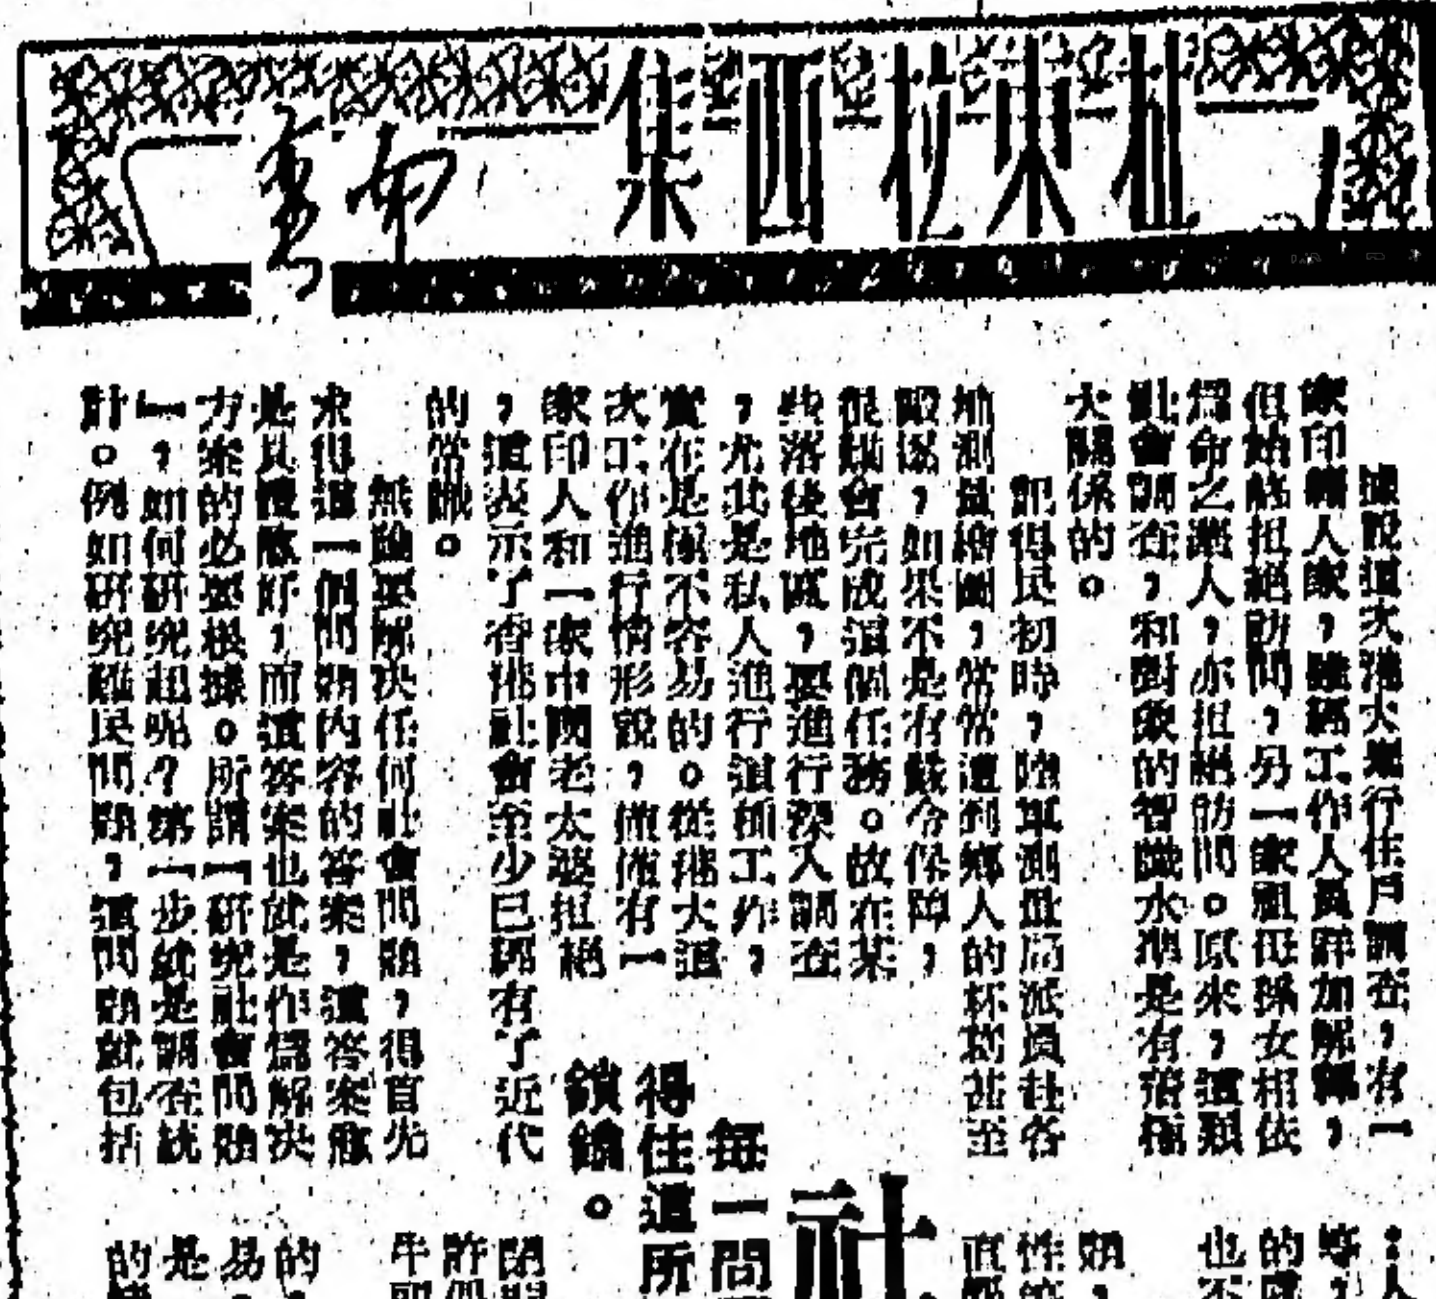 扯東拉西集
據說這次港大舉行住戶調查，有一
家印籍人家，雖經工作人員詳加解釋，
但始終拒絕訪問，另一家祖母孫女相依
爲命之漁人，亦拒絕訪問。原來，這類
社會調查，和對象的智識水準是有着極
大關係的。
記得民初時，陸軍測量局派員赴各
地測量繪圖，常常遭到鄉人的杯葛甚至
毆逐，如果不是有嚴令保障，
很難會完成這個任務。故在某
些落後地區，要進行深入調查
，尤其是私人進行這種工作，
實在是極不容易的。從港大這
次工作進行情形說，僅僅有一
家印人和一家中老太婆拒絕
，這表示了香港社會至少已經有了近代
的常識。
無論要解決任何社會問題，得首先
求得這一個問題內容的答案，這答案應
是具體好，而這答案也就是作爲解決
方案的必要根據。所謂「研究社會問題
」，如何研究起呢？第一步就是調查統
計。例如研究難民問題，這問題就包括
社
每一問
得住這所
鎖。
：人
等，
的
也不
類，
性
直
許
牛
的
易
是
的